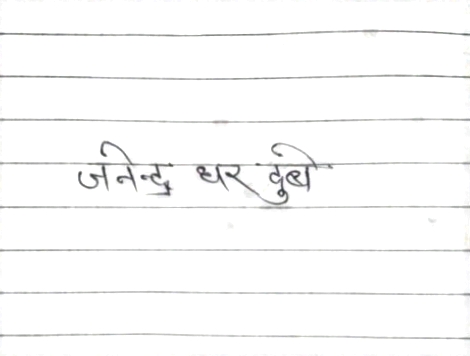 जनेन्द्र धर दुबे